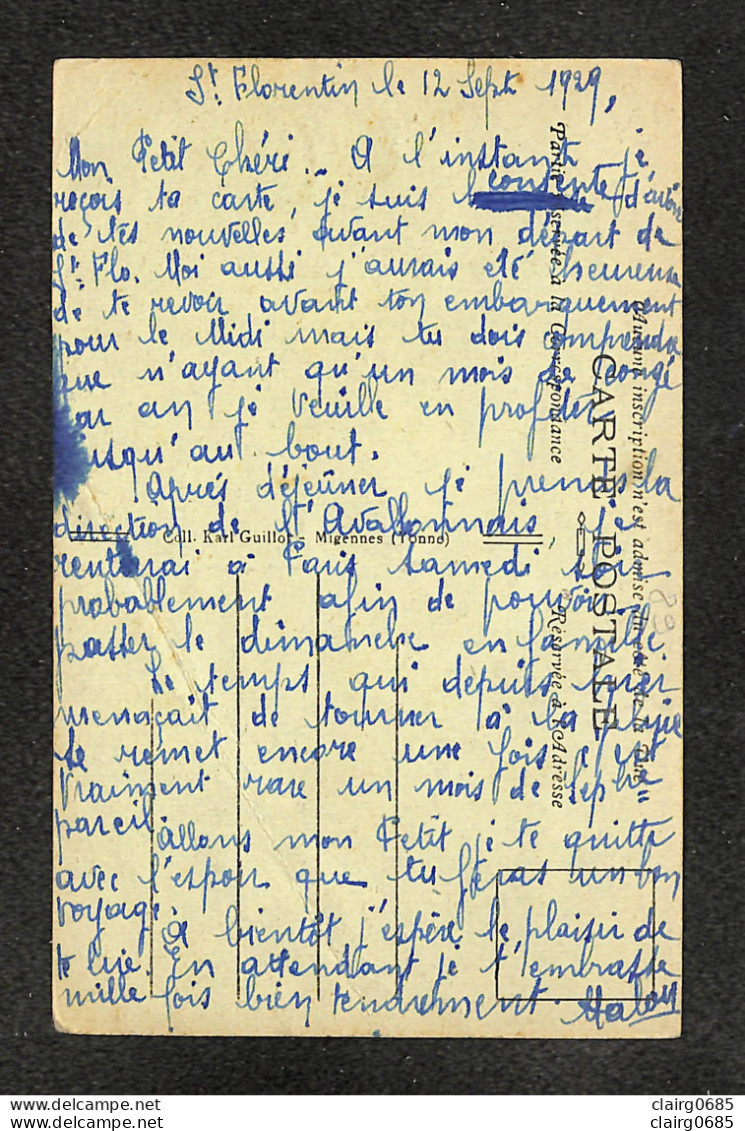 St. Florentin le 12 Sept 1929,
Mon Petit Chéri... A l'instant je
reçois ta carte, je suis contente d'avoir
de tes nouvelles avant mon départ de
St. Flo. Moi aussi j'aurais été heureuse
de te revoir avant ton embarquement
pour le Midi mais tu dois comprendre
que n'ayant qu'un mois de congé
par an je veuille en profiter
jusqu'au bout.
Après déjeûner je prends la
direction de l'Avallonnais, je
rentrerai à Paris samedi soir
probablement afin de pouvoir
passer le dimanche en famille.
Le temps qui depuis hier
menaçait de tourner à la pluie
se remet encore une fois c'est
vraiment rare un mois de Septbre
pareil.
Allons mon Petit je te quitte
avec l'espoir que tu feras un bon
voyage.
A bientôt j'espère le plaisir de
te lire. En attendant je t'embrasse
mille fois bien tendrement. Malou
CARTE POSTALE
Partie réservée à la Correspondance
Réservée à l'Adresse
Coll. Karl Guillot - Migennes (Yonne)
89
clairg0685
clairg0685
clairg0685
clairg0685